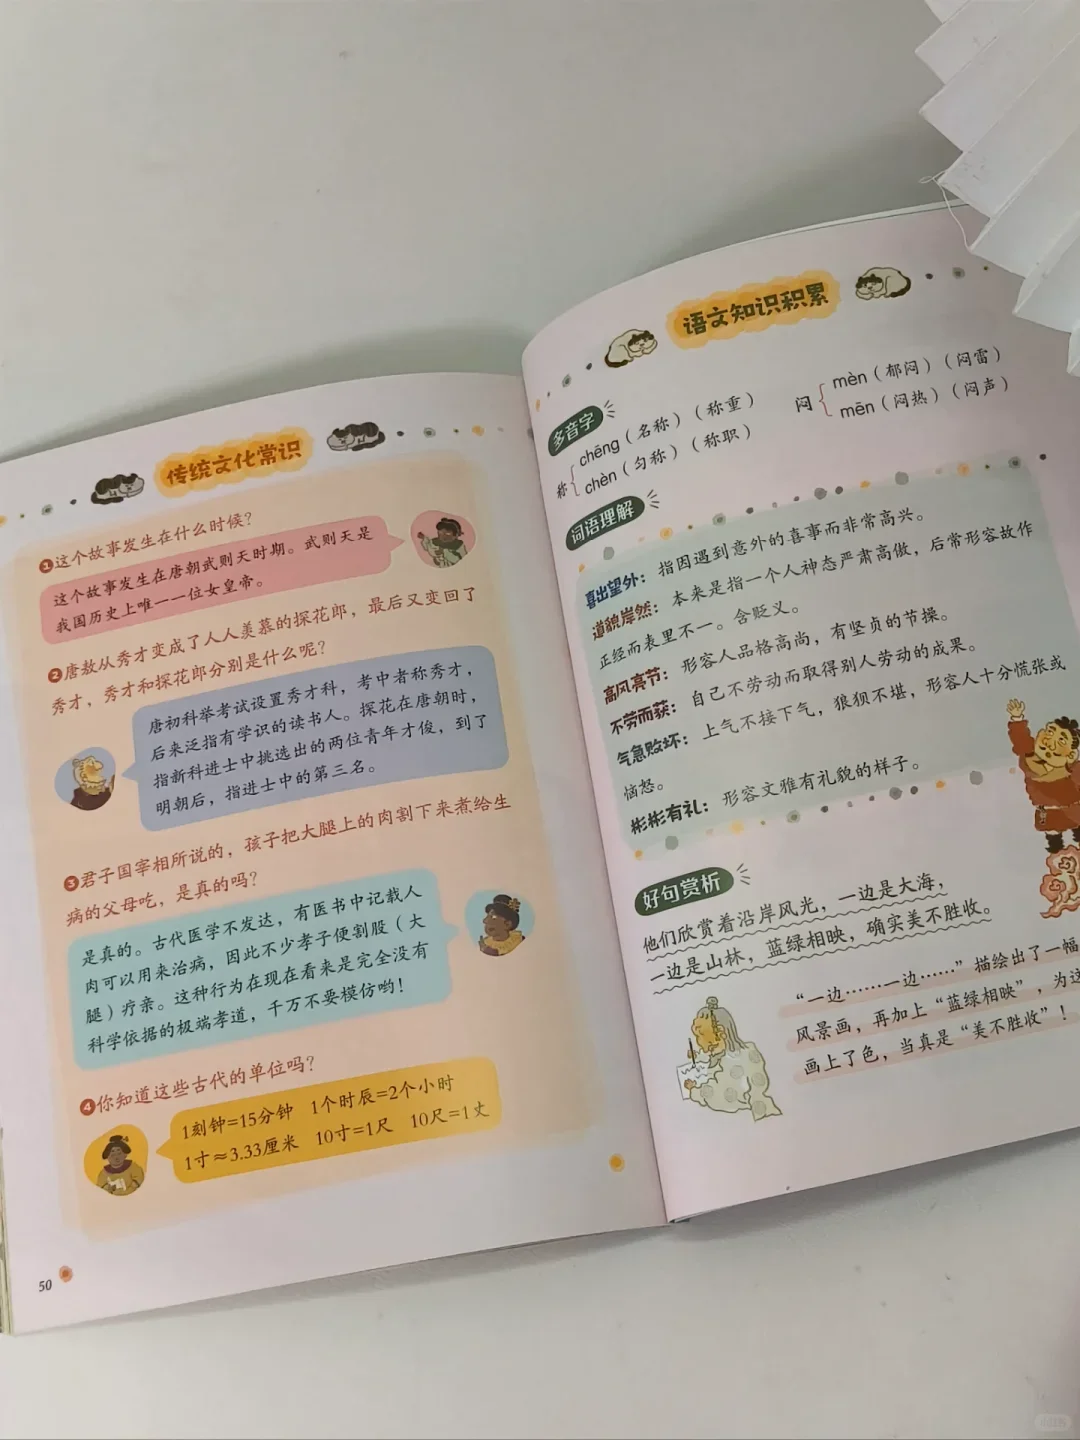 传统文化常识
❶这个故事发生在什么时候?
这个故事发生在唐朝武则天时期。武则天是
我国历史上唯一一位女皇帝。
❷唐敖从秀才变成了人人羡慕的探花郎，最后又变回了
秀才，秀才和探花郎分别是什么呢?
唐初科举考试设置秀才科，考中者称秀才，
后来泛指有学识的读书人。探花在唐朝时，
指新科进士中挑选出的两位青年才俊，到了
明朝后，指进士中的第三名。
❸君子国宰相所说的，孩子把大腿上的肉割下来煮给生
病的父母吃，是真的吗?
是真的。古代医学不发达，有医书中记载人
肉可以用来治病，因此不少孝子便割股（大
腿）疗亲。这种行为在现在看来是完全没有
科学依据的极端孝道，千万不要模仿哟！
❹你知道这些古代的单位吗?
1刻钟=15分钟 1个时辰=2个小时
1寸≈3.33厘米 10寸=1尺 10尺=1丈
50
语文知识积累
多音字
称
chēng（名称）（称重）
chèn（匀称）（称职）
闷
mèn（郁闷）（闷雷）
mēn（闷热）（闷声）
词语理解
喜出望外：指因遇到意外的喜事而非常高兴。
道貌岸然：本来是指一个人神态严肃高傲，后常形容故作
正经而表里不一。含贬义。
高风亮节：形容人品格高尚，有坚贞的节操。
不劳而获：自己不劳动而取得别人劳动的成果。
气急败坏：上气不接下气，狼狈不堪，形容人十分慌张或
恼怒。
彬彬有礼：形容文雅有礼貌的样子。
好句赏析
他们欣赏着沿岸风光，一边是大海，
一边是山林，蓝绿相映，确实美不胜收。
“一边……一边……”描绘出了一幅
风景画，再加上“蓝绿相映”，为这
画上了色，当真是“美不胜收”！